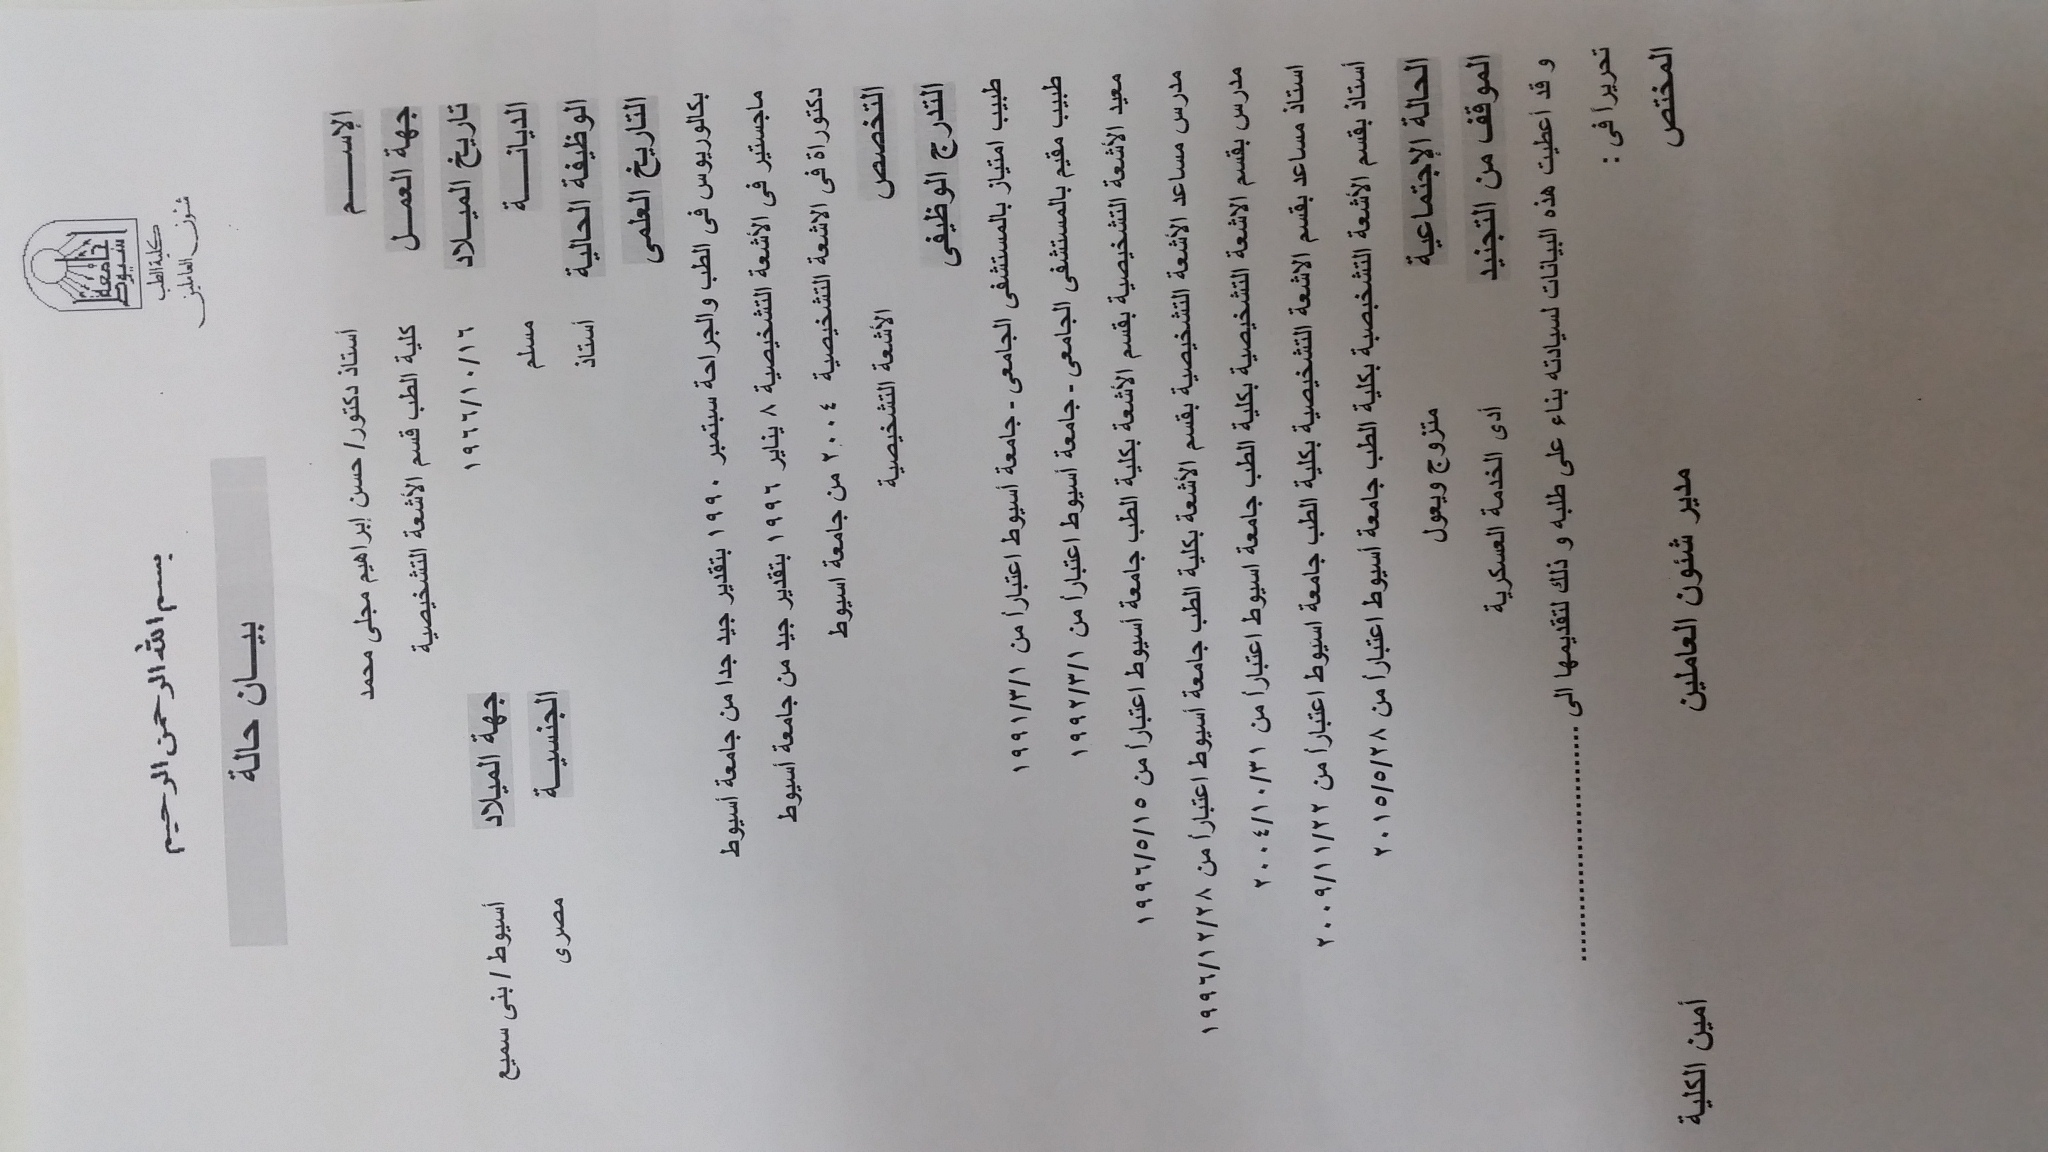 جامعة
أسيوط
كلية الطب
شئون العاملين
بسم الله الرحمن الرحيم
بيـــان حالة
الإســـم أستاذ دكتور/ حسن إبراهيم مجلى محمد
جهة العمـل كلية الطب قسم الأشعة التشخيصية
تاريخ الميـلاد ١٩٦٦/١٠/١٦ جهة الميلاد أسيوط / بنى سميع
الديانـــة مسلم الجنسيـــة مصرى
الوظيفة الحالية أستاذ
التاريخ العلمى
بكالوريوس فى الطب والجراحة سبتمبر ١٩٩٠ بتقدير جيد جدا من جامعة أسيوط
ماجستير فى الأشعة التشخيصية ٨ يناير ١٩٩٦ بتقدير جيد من جامعة أسيوط
دكتوراة فى الاشعة التشخيصية ٢٠٠٤ من جامعة اسيوط
التخصص الأشعة التشخيصية
التدرج الوظيفى
طبيب امتياز بالمستشفى الجامعى - جامعة أسيوط اعتباراً من ١٩٩١/٣/١
طبيب مقيم بالمستشفى الجامعى - جامعة أسيوط اعتباراً من ١٩٩٢/٣/١
معيد الأشعة التشخيصية بقسم الأشعة بكلية الطب جامعة أسيوط اعتباراً من ١٩٩٦/٥/١٥
مدرس مساعد الأشعة التشخيصية بقسم الأشعة بكلية الطب جامعة أسيوط اعتباراً من ١٩٩٦/١٢/٢٨
مدرس بقسم الاشعة التشخيصية بكلية الطب جامعة اسيوط اعتباراً من ٢٠٠٤/١٠/٣١
استاذ مساعد بقسم الاشعة التشخيصية بكلية الطب جامعة اسيوط اعتباراً من ٢٠٠٩/١١/٢٢
أستاذ بقسم الأشعة التشخيصية بكلية الطب جامعة أسيوط اعتباراً من ٢٠١٥/٥/٢٨
الحالة الإجتماعية متزوج ويعول
الموقف من التجنيد أدى الخدمة العسكرية
و قد أعطيت هذه البيانات لسيادته بناء على طلبه و ذلك لتقديمها الى ..............................
تحريراً فى :
المختص مدير شئون العاملين أمين الكلية